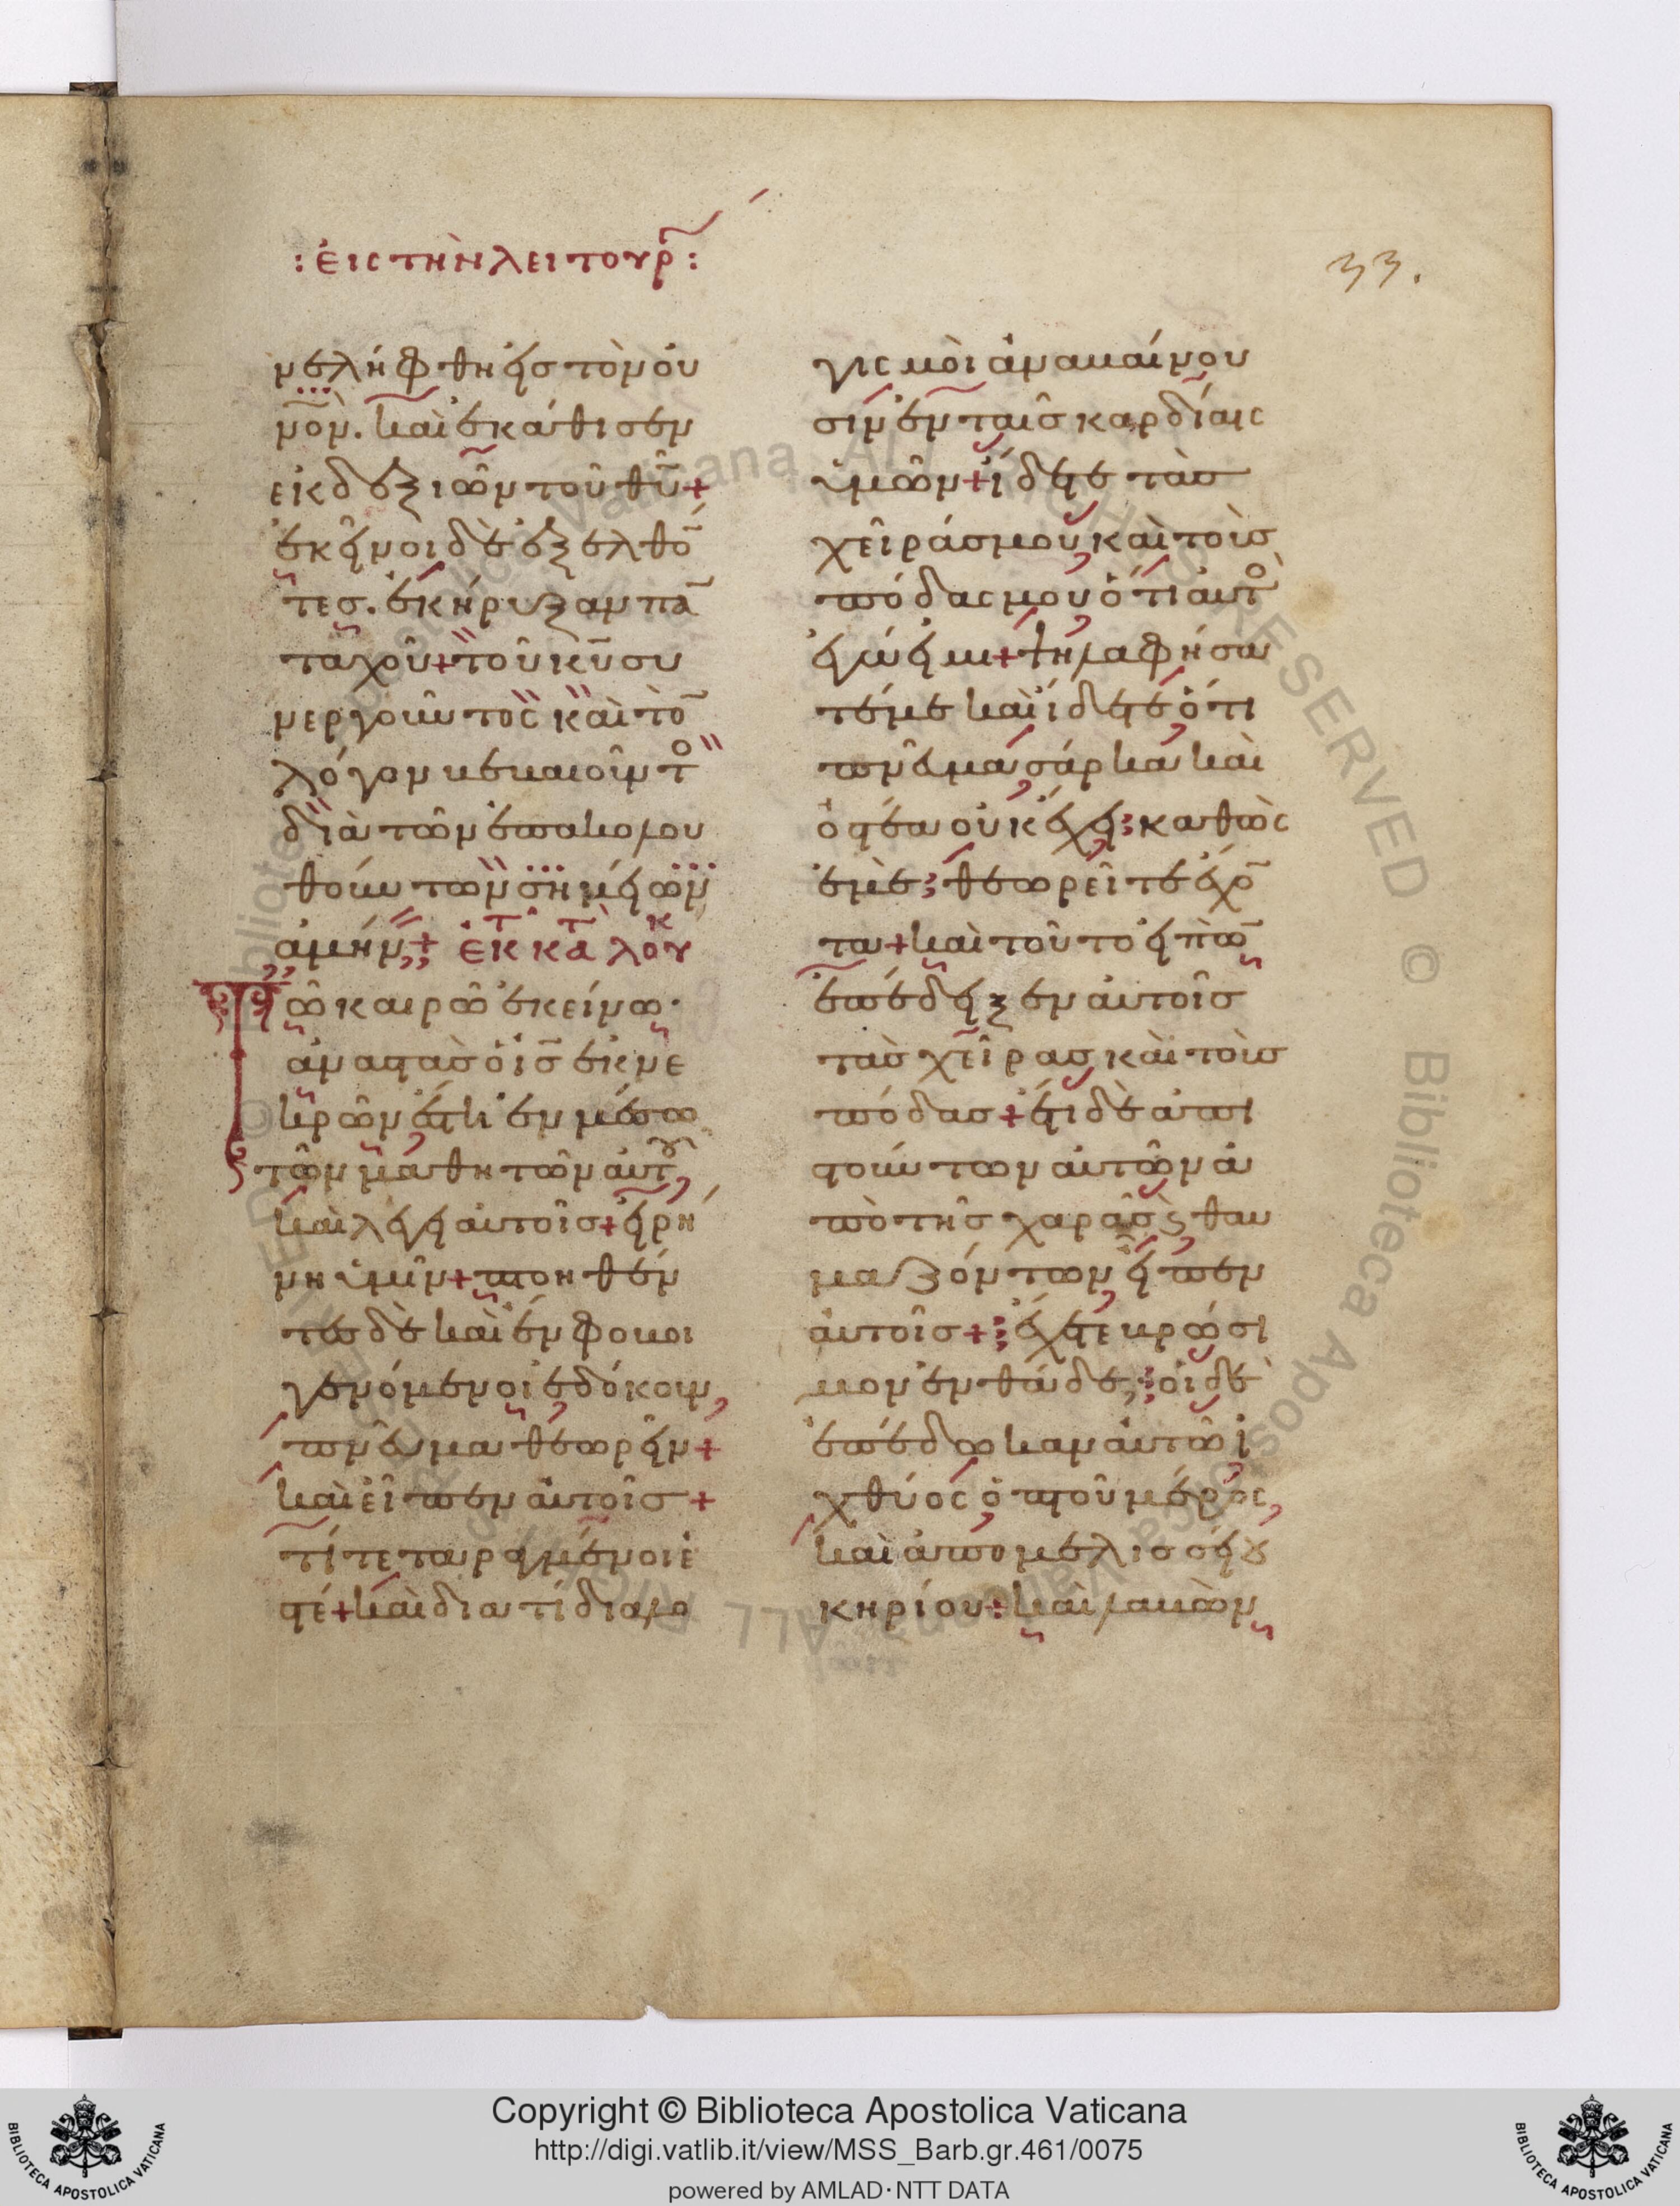 : ἐις τὴν λειτουρ :
33.
νελήφθη εἰσ τὸν ὀυ
νον. καὶ ἐκάθισεν
εἰκ δεξιῶν τοῦ θῦ +
ἐκεῖνοι δὲ ἐξελθό
τες. ἐκήρυξαν πα
ταχοῦ + τοῦ κυ συ
νεργοῦντος καὶ το
λόγον βεβαιοῦντ
διὰ τῶν ἐπακολου
θούντων σημείων
ἀμήν + ἐκ κατ λουκ
Τῶ καιρῶ ἐκείνω.
ἀναστὰσ ὁ ις ἐκ νε
κρῶν ἔστη ἐν μέσω
τῶν μαθητῶν αὐτου
καὶ λέγει αὐτοῖσ + εἰρή
νη ὑμῖν + πτοηθέν
τεσ δὲ καὶ ἔνφοβοι
γενόμενοι ἐδόκουν,
πνεῦμα θεωρεῖν +
καὶ εἶπεν αὐτοῖσ +
τί τεταραγμένοι ἐ
στέ + καὶ διατί διαλο
γισμοὶ ἀναβαίνου
σιν ἐν ταῖσ καρδίαις
ὑμῶν + ἴδετε τὰσ
χεῖράσ μου, καὶ τοὺσ
πόδας μου, ὅτι αὐτο
ἐγώ εἰμι + ψηλαφήσα
τέ με καὶ ἴδετε, ὅτι
πνεῦμα, σάρκα καὶ
ὀστέα οὐκ ἔχει: καθὼς
ἐμὲ; θεωρεῖτε ἔχο
τα + καὶ τοῦτο εἰπὼ
ἐπέδειξεν αὐτοῖσ
τὰσ χεῖρασ καὶ τοὺσ
πόδασ + ἔτι δὲ ἀπι
στούντων αὐτῶν ἀ
πὸ τῆσ χαρᾶσ ϗ θαυ
μαζόντων, εἶπεν
αὐτοῖσ + ἔχετε βρώσι
μον ἐνθάδε; οἱ δὲ
ἐπέδωκαν αὐτῶ ἰ
χθύος ὀπτοῦ μέρος,
καὶ ἀπο μελισσείου
κηρίου + καὶ λαβὼν
Copyright © Biblioteca Apostolica Vaticana
http://digi.vatlib.it/view/MSS_Barb.gr.461/0075
powered by AMLAD·NTT DATA